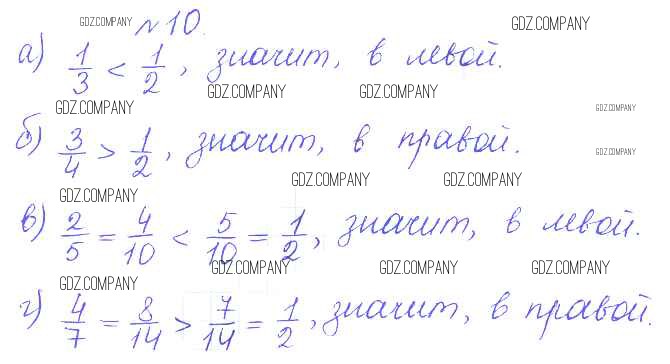 GDZ.COMPANY №10. GDZ.COMPANY
а) 1/3 < 1/2, значит, в левой.
GDZ.COMPANY GDZ.COMPANY
GDZ.COMPANY GDZ.COMPANY
б) 3/4 > 1/2, значит, в правой.
GDZ.COMPANY
GDZ.COMPANY GDZ.COMPANY
GDZ.COMPANY
в) 2/5 = 4/10 < 5/10 = 1/2, значит, в левой.
GDZ.COMPANY GDZ.COMPANY GDZ.COMPANY
GDZ.COMPANY
г) 4/7 = 8/14 > 7/14 = 1/2, значит, в правой.